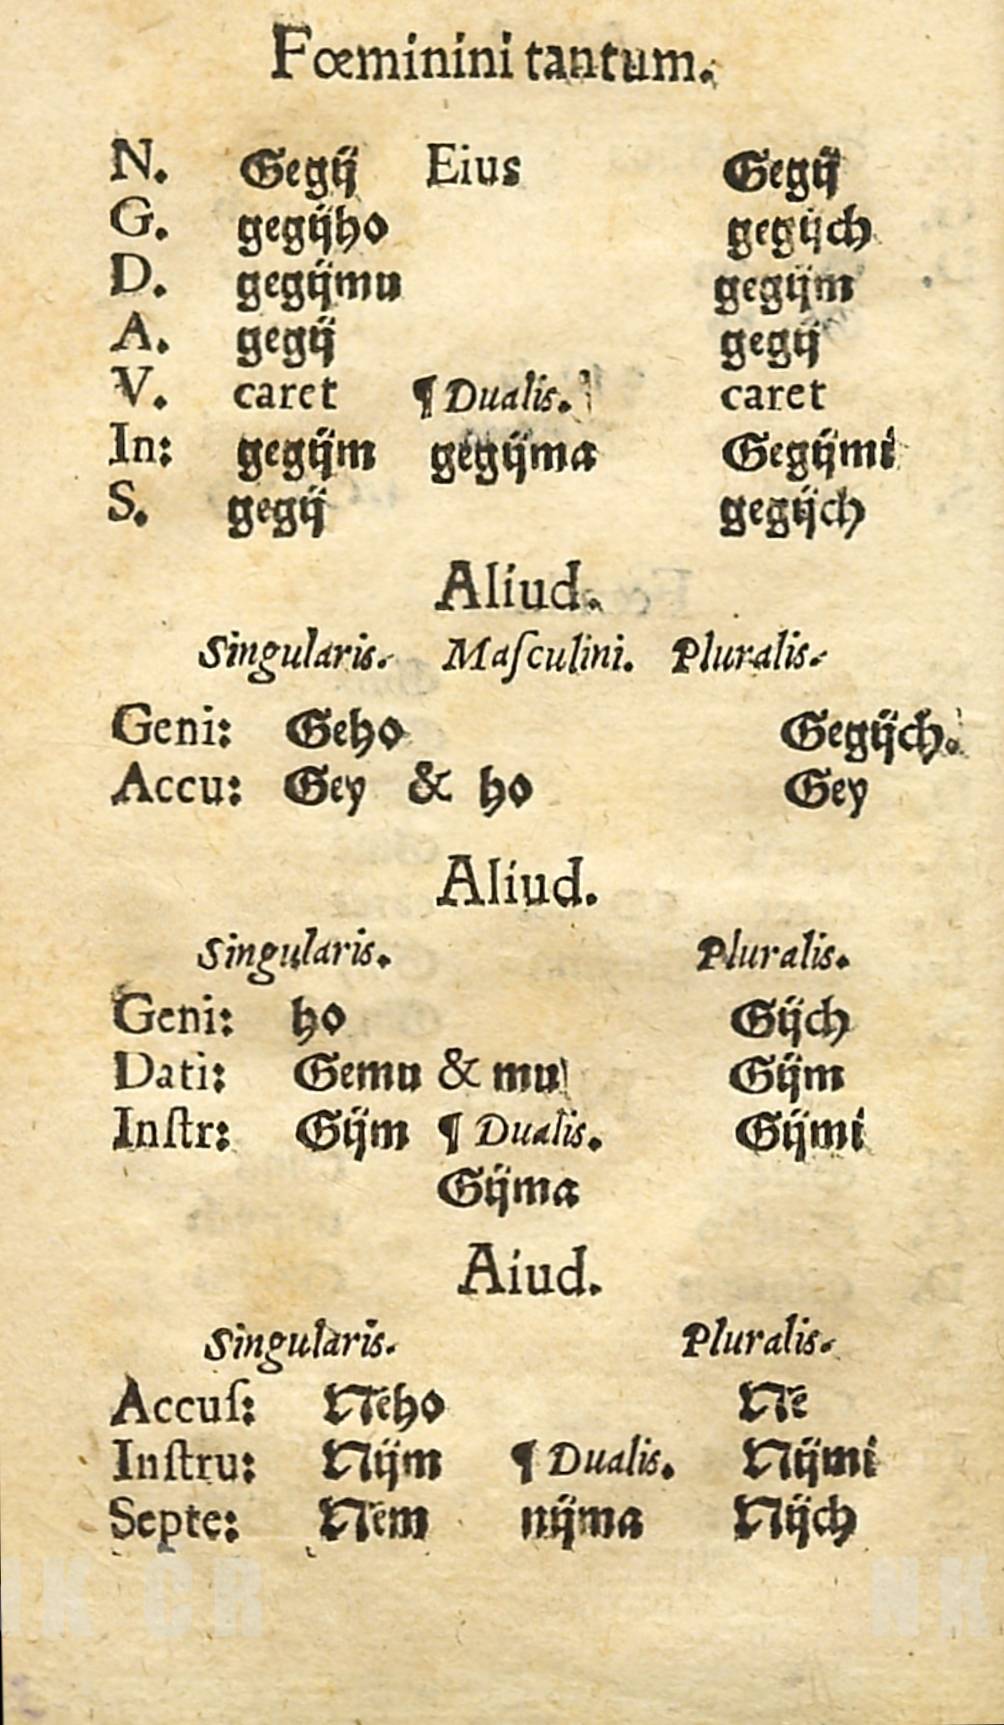 Fœminini tantum.
N. Gegij Eius Gegij
G. gegijho gegijch
D. gegijmu gegijm
A. gegij gegij
V. caret ¶ Dualis. caret
In: gegijm gegijma Gegijmi
S. gegij gegijch
Aliud.
Singularis. Maſculini. Pluralis.
Geni: Geho Gegijch.
Accu: Gey & ho Gey
Aliud.
Singularis. Pluralis.
Geni: ho Gijch
Dati: Gemu & mu Gijm
Inſtr: Gijm ¶ Dualis. Gijmi
Gijma
Aiud.
Singularis. Pluralis.
Accuſ: Něho Ně
Inſtru: Nijm ¶ Dualis. Nijmi
Septe: Něm nijma Nijch
NK CR NK